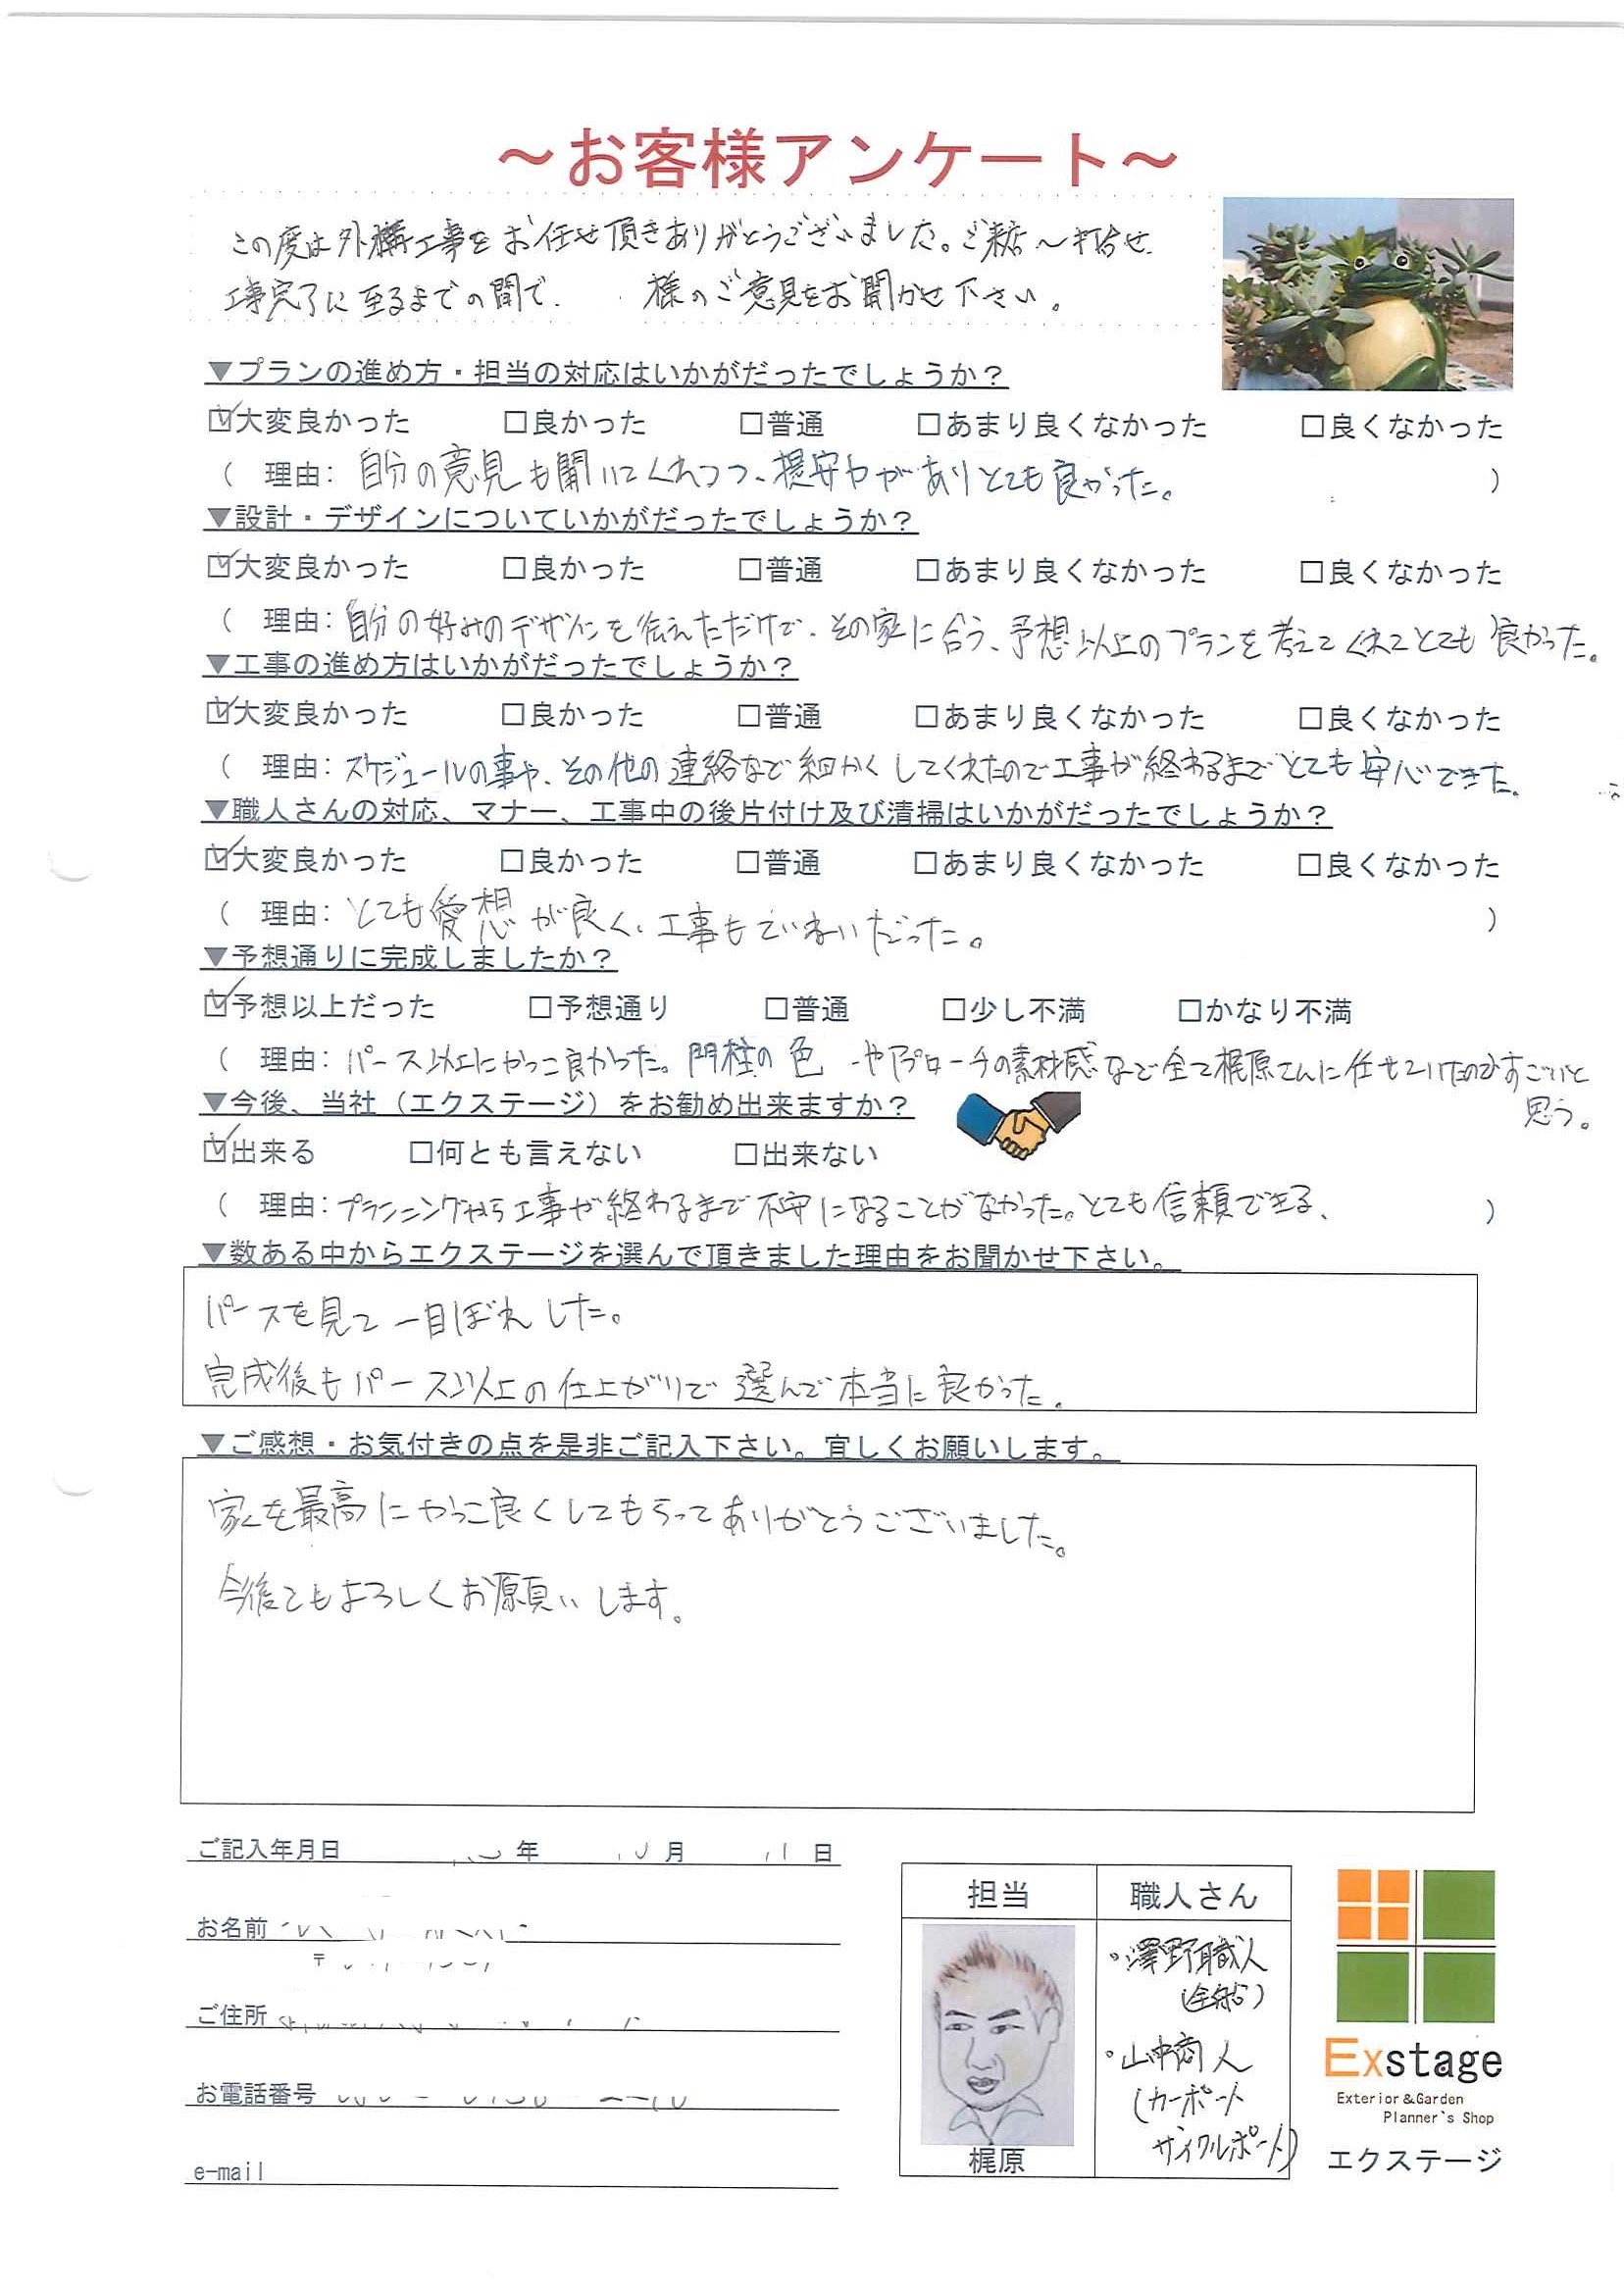 ～お客様アンケート～
この度は外構工事をお任せ頂きありがとうございました。ご来店～打合せ、
工事完了に至るまでの間で、 様のご意見をお聞かせ下さい。
▼プランの進め方・担当の対応はいかがだったでしょうか？
☑大変良かった □良かった □普通 □あまり良くなかった □良くなかった
（ 理由：自分の意見も聞いてくれつつ、提案力がありとても良かった。 ）
▼設計・デザインについていかがだったでしょうか？
☑大変良かった □良かった □普通 □あまり良くなかった □良くなかった
（ 理由：自分の好みのデザインを伝えただけで、その家に合う、予想以上のプランを考えてくれてとても良かった。
▼工事の進め方はいかがだったでしょうか？
☑大変良かった □良かった □普通 □あまり良くなかった □良くなかった
（ 理由：スケジュールの事や、その他の連絡など細かくしてくれたので工事が終わるまでとても安心できた。
▼職人さんの対応、マナー、工事中の後片付け及び清掃はいかがだったでしょうか？
☑大変良かった □良かった □普通 □あまり良くなかった □良くなかった
（ 理由：とても愛想が良く、工事もていねいだった。 ）
▼予想通りに完成しましたか？
☑予想以上だった □予想通り □普通 □少し不満 □かなり不満
（ 理由：パース以上にかっこ良かった。門柱の色 やアプローチの素材感など全て梶原さんに任せていたのですごいと
思う。
▼今後、当社（エクステージ）をお勧め出来ますか？
☑出来る □何とも言えない □出来ない
（ 理由：プランニングから工事が終わるまで不安になることがなかった。とても信頼できる、 ）
▼数ある中からエクステージを選んで頂きました理由をお聞かせ下さい。
パースを見て一目ぼれした。
完成後もパース以上の仕上がりで選んで本当に良かった。
▼ご感想・お気付きの点を是非ご記入下さい。宜しくお願いします。
家を最高にかっこ良くしてもらってありがとうございました。
今後ともよろしくお願いします。
ご記入年月日 年 月 日
お名前
〒
ご住所
お電話番号
e-mail
担当 職人さん
・澤野職人
(全般)
・山中商人
(カーポート
サイクルポート)
梶原
Exstage
Exterior&Garden
Planner's Shop
エクステージ